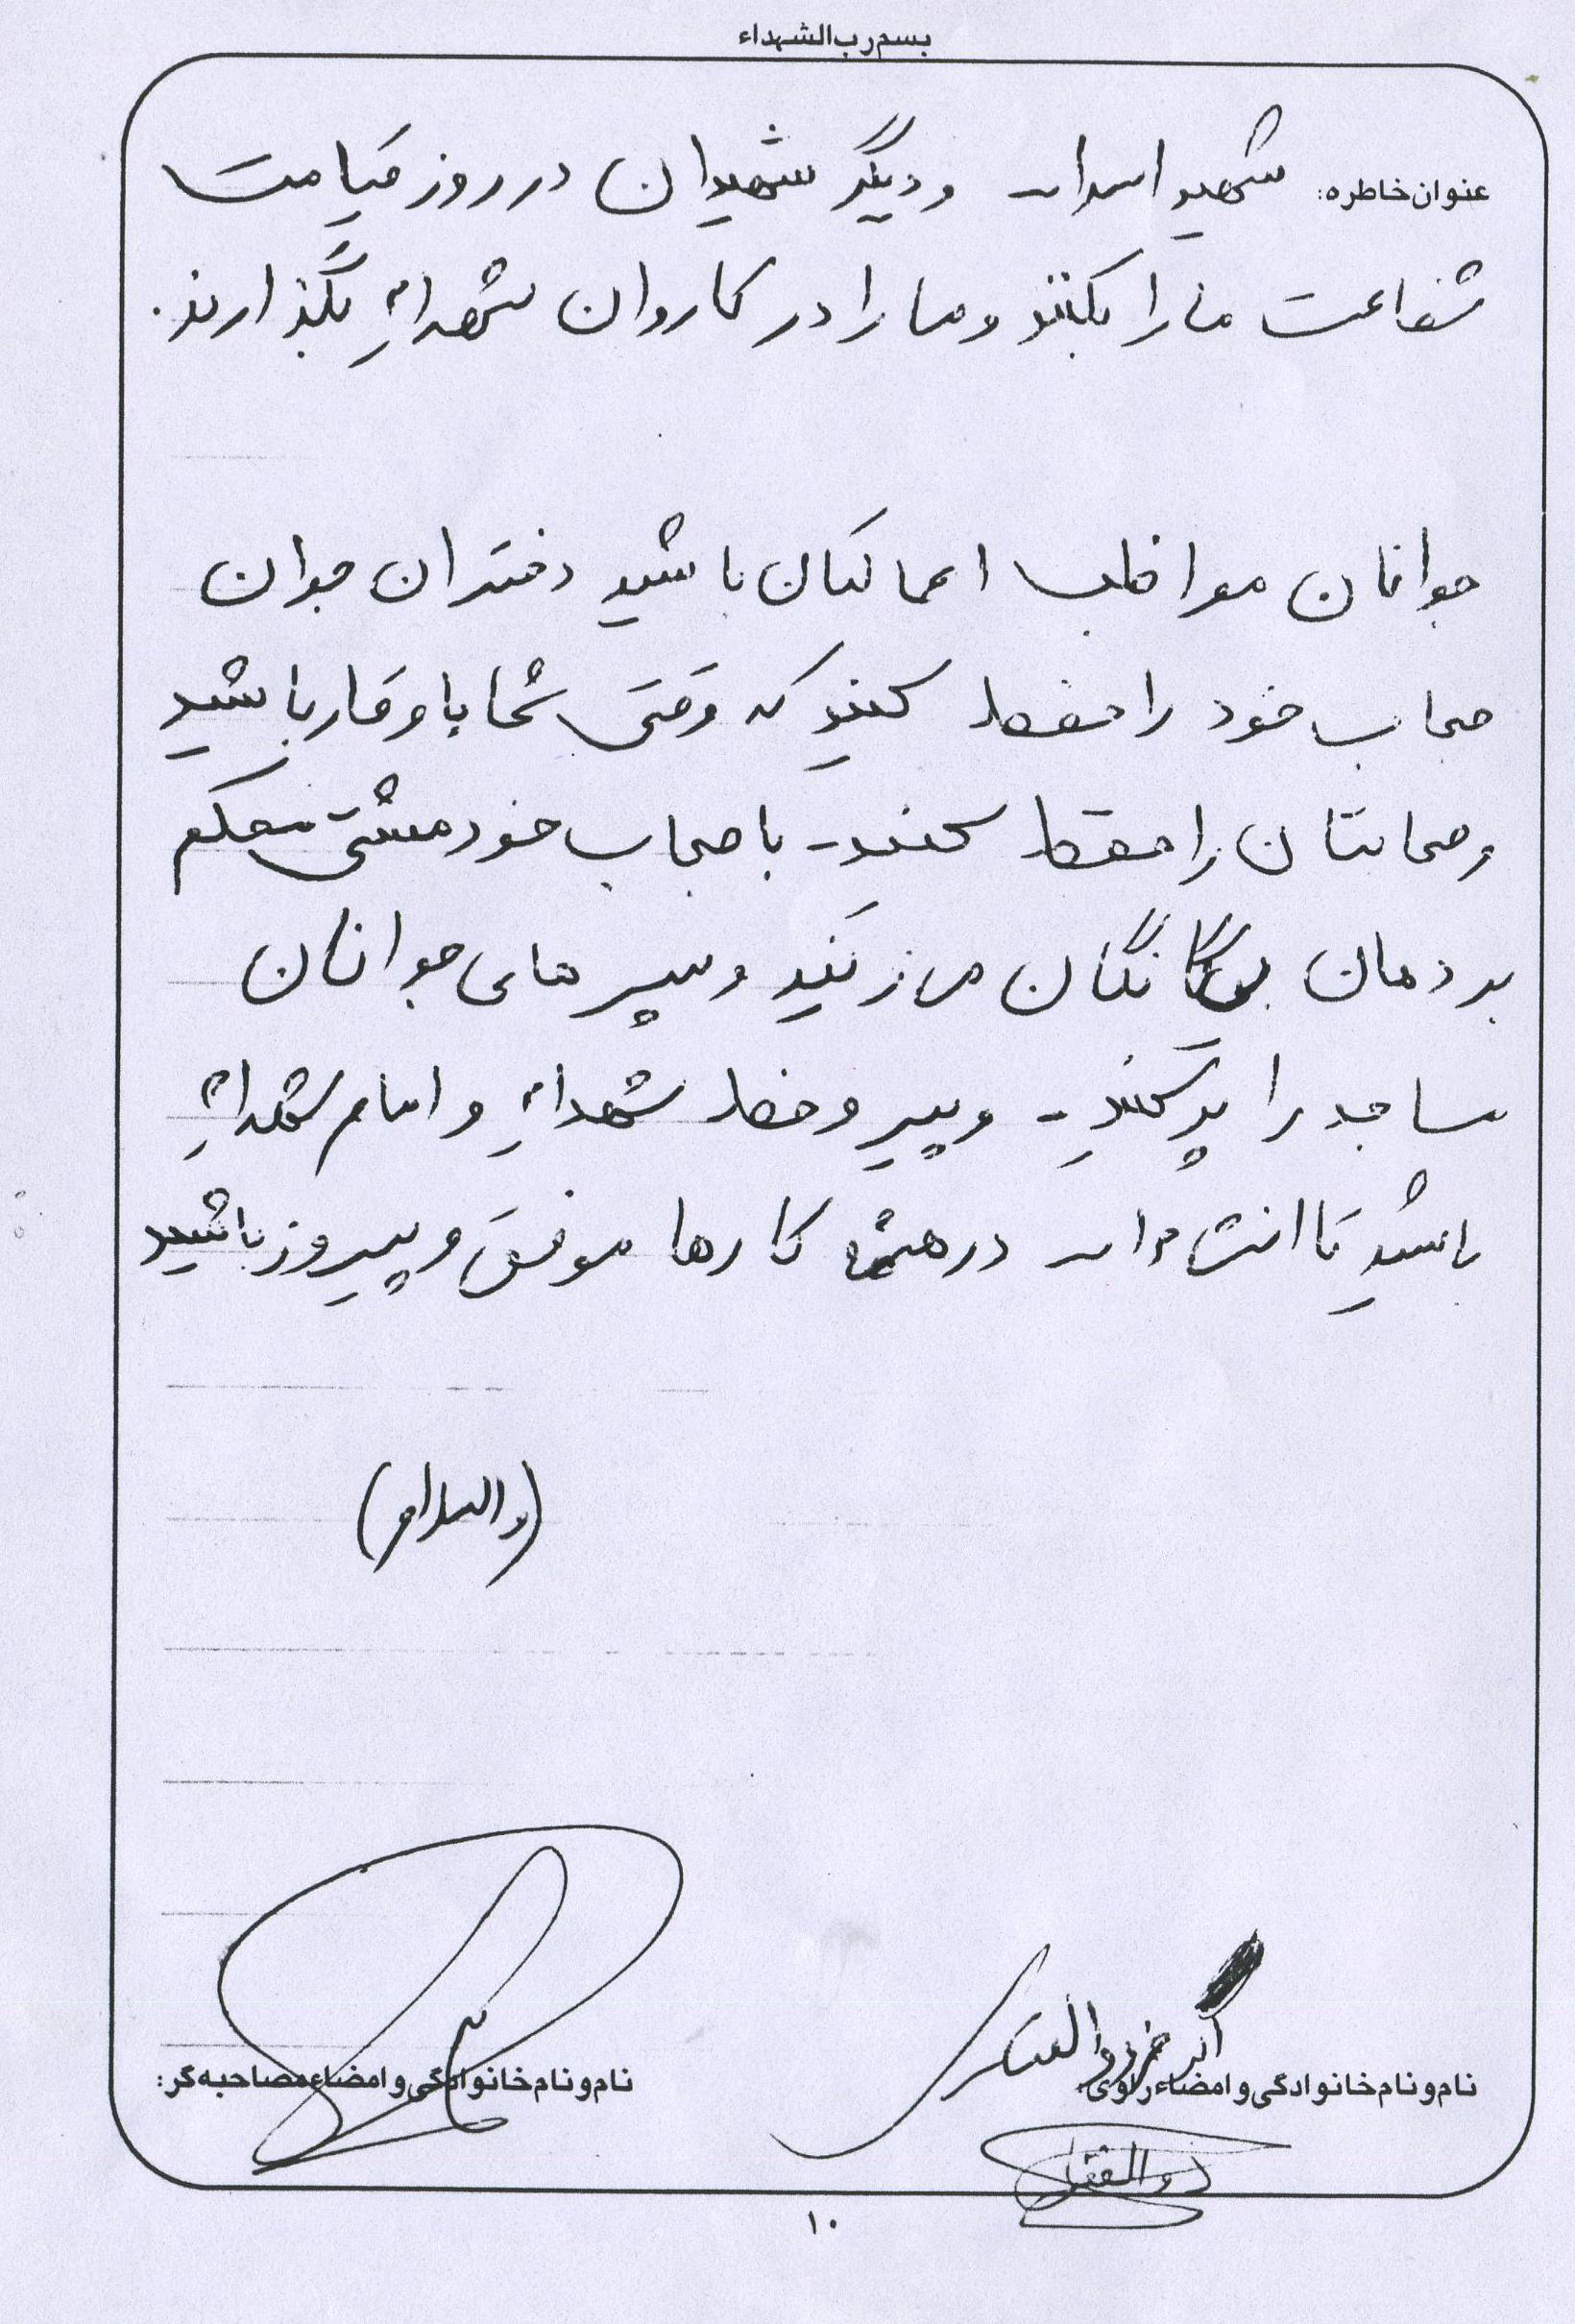 بسم رب الشهداء
عنوان خاطره: شهید اسداله و دیگر شهیدان در روز قیامت
شفاعت ما را بکنند و ما را در کاروان شهداء بگذارند.
جوانان مواظب اعمالتان باشید دختران جوان
حجاب خود را حفظ کنید که وقتی شما با وقار باشید
و حجابتان را حفظ کنید - با حجاب خود مشتی محکم
بر دهان بیگانگان می زنید و پسرهای جوانان
مساجد را پر کنید - و پیرو خط شهداء و امام شهداء
باشید تا انشاءاله در همه کارها موفق و پیروز باشید
(والسلام)
نام و نام خانوادگی و امضاء راوی:
نام و نام خانوادگی و امضاء مصاحبه گر:
ذوالفقار
۱۰